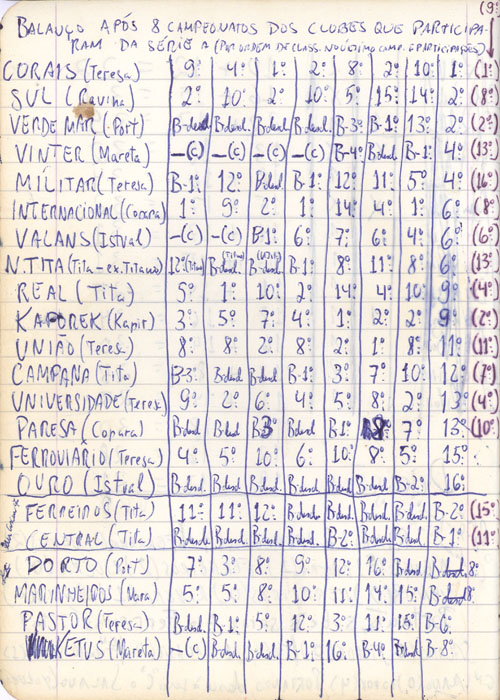 (9:
BALANÇO APÓS 8 CAMPEONATOS DOS CLUBES QUE PARTICIPA-
RAM DA SÉRIE A (POR ORDEM DE CLASS. NO ÚLTIMO CAMP. E PARTICIPAÇÕES)
CORAIS (Teresa) 9º 4º 1º 2º 8º 2º 10º 1º (1º
SUL (Ravina) 2º 10º 2º 10º 5º 15º 14º 2º (8º
VERDE MAR (Port) B-desc. B-desc. B-desc. B-desc. B-3º B-1º 13º 2º (2º
VINTER (Mareta) -(c) -(c) -(c) -(c) B-4º B-desc. B-1º 4º (13º
MILITAR (Teresa) B-1º 12º B-desc. B-1º 12º 11º 5º 4º (16º
INTERNACIONAL (Copara) 1º 9º 2º 1º 14º 4º 1º 6º (8º
VALANS (Istval) -(c) -(c) B-1º 6º 7º 6º 4º 6º (6º
N.TITA (Tita - ex. Titano) 12º (Titano) B-desc. B-desc. B-1º 8º 11º 8º 6º (13º
REAL (Tita) 5º 1º 10º 2º 14º 4º 10º 9º (4º
KAPOREK (Kapir) 3º 5º 7º 4º 1º 2º 2º 9º (2º
UNIÃO (Teresa) 8º 8º 2º 8º 2º 1º 8º 11º (11º
CAMPANA (Tita) B-3º B-desc. B-desc. B-1º 3º 7º 10º 12º (7º
UNIVERSIDADE (Teresa) 9º 2º 6º 4º 5º 8º 2º 13º (4º
PARESA (Copara) B-desc. B-desc. B3º B-desc. B1º 8º 7º 13º (10º
FERROVIÁRIO (Teresa) 4º 5º 10º 6º 10º 8º 5º 15º
OURO (Istval) B-desc. B-desc. B-desc. B-desc. B-desc. B-desc. B-2º 16º
FERREIROS (Tita) 11º 11º 12º B-desc. B-desc. B-desc. B-desc. B-2º (15º
CENTRAL (Tita) B-desc. B-desc. B-desc. B-desc. B-2º B-desc. B-desc. B-1º (11º
DORTO (Port) 7º 3º 8º 9º 12º 16º B-desc. B-desc. 8º
MARINHEIROS (Nara) 5º 5º 8º 10º 11º 14º 15º B-desc. 8º
PASTOR (Teresa) B-desc. B-1º 5º 12º 3º 11º 15º B-6º
KETUS (Mareta) -(c) B-desc. B-desc. B-1º 16º B-4º B-desc. B-8º